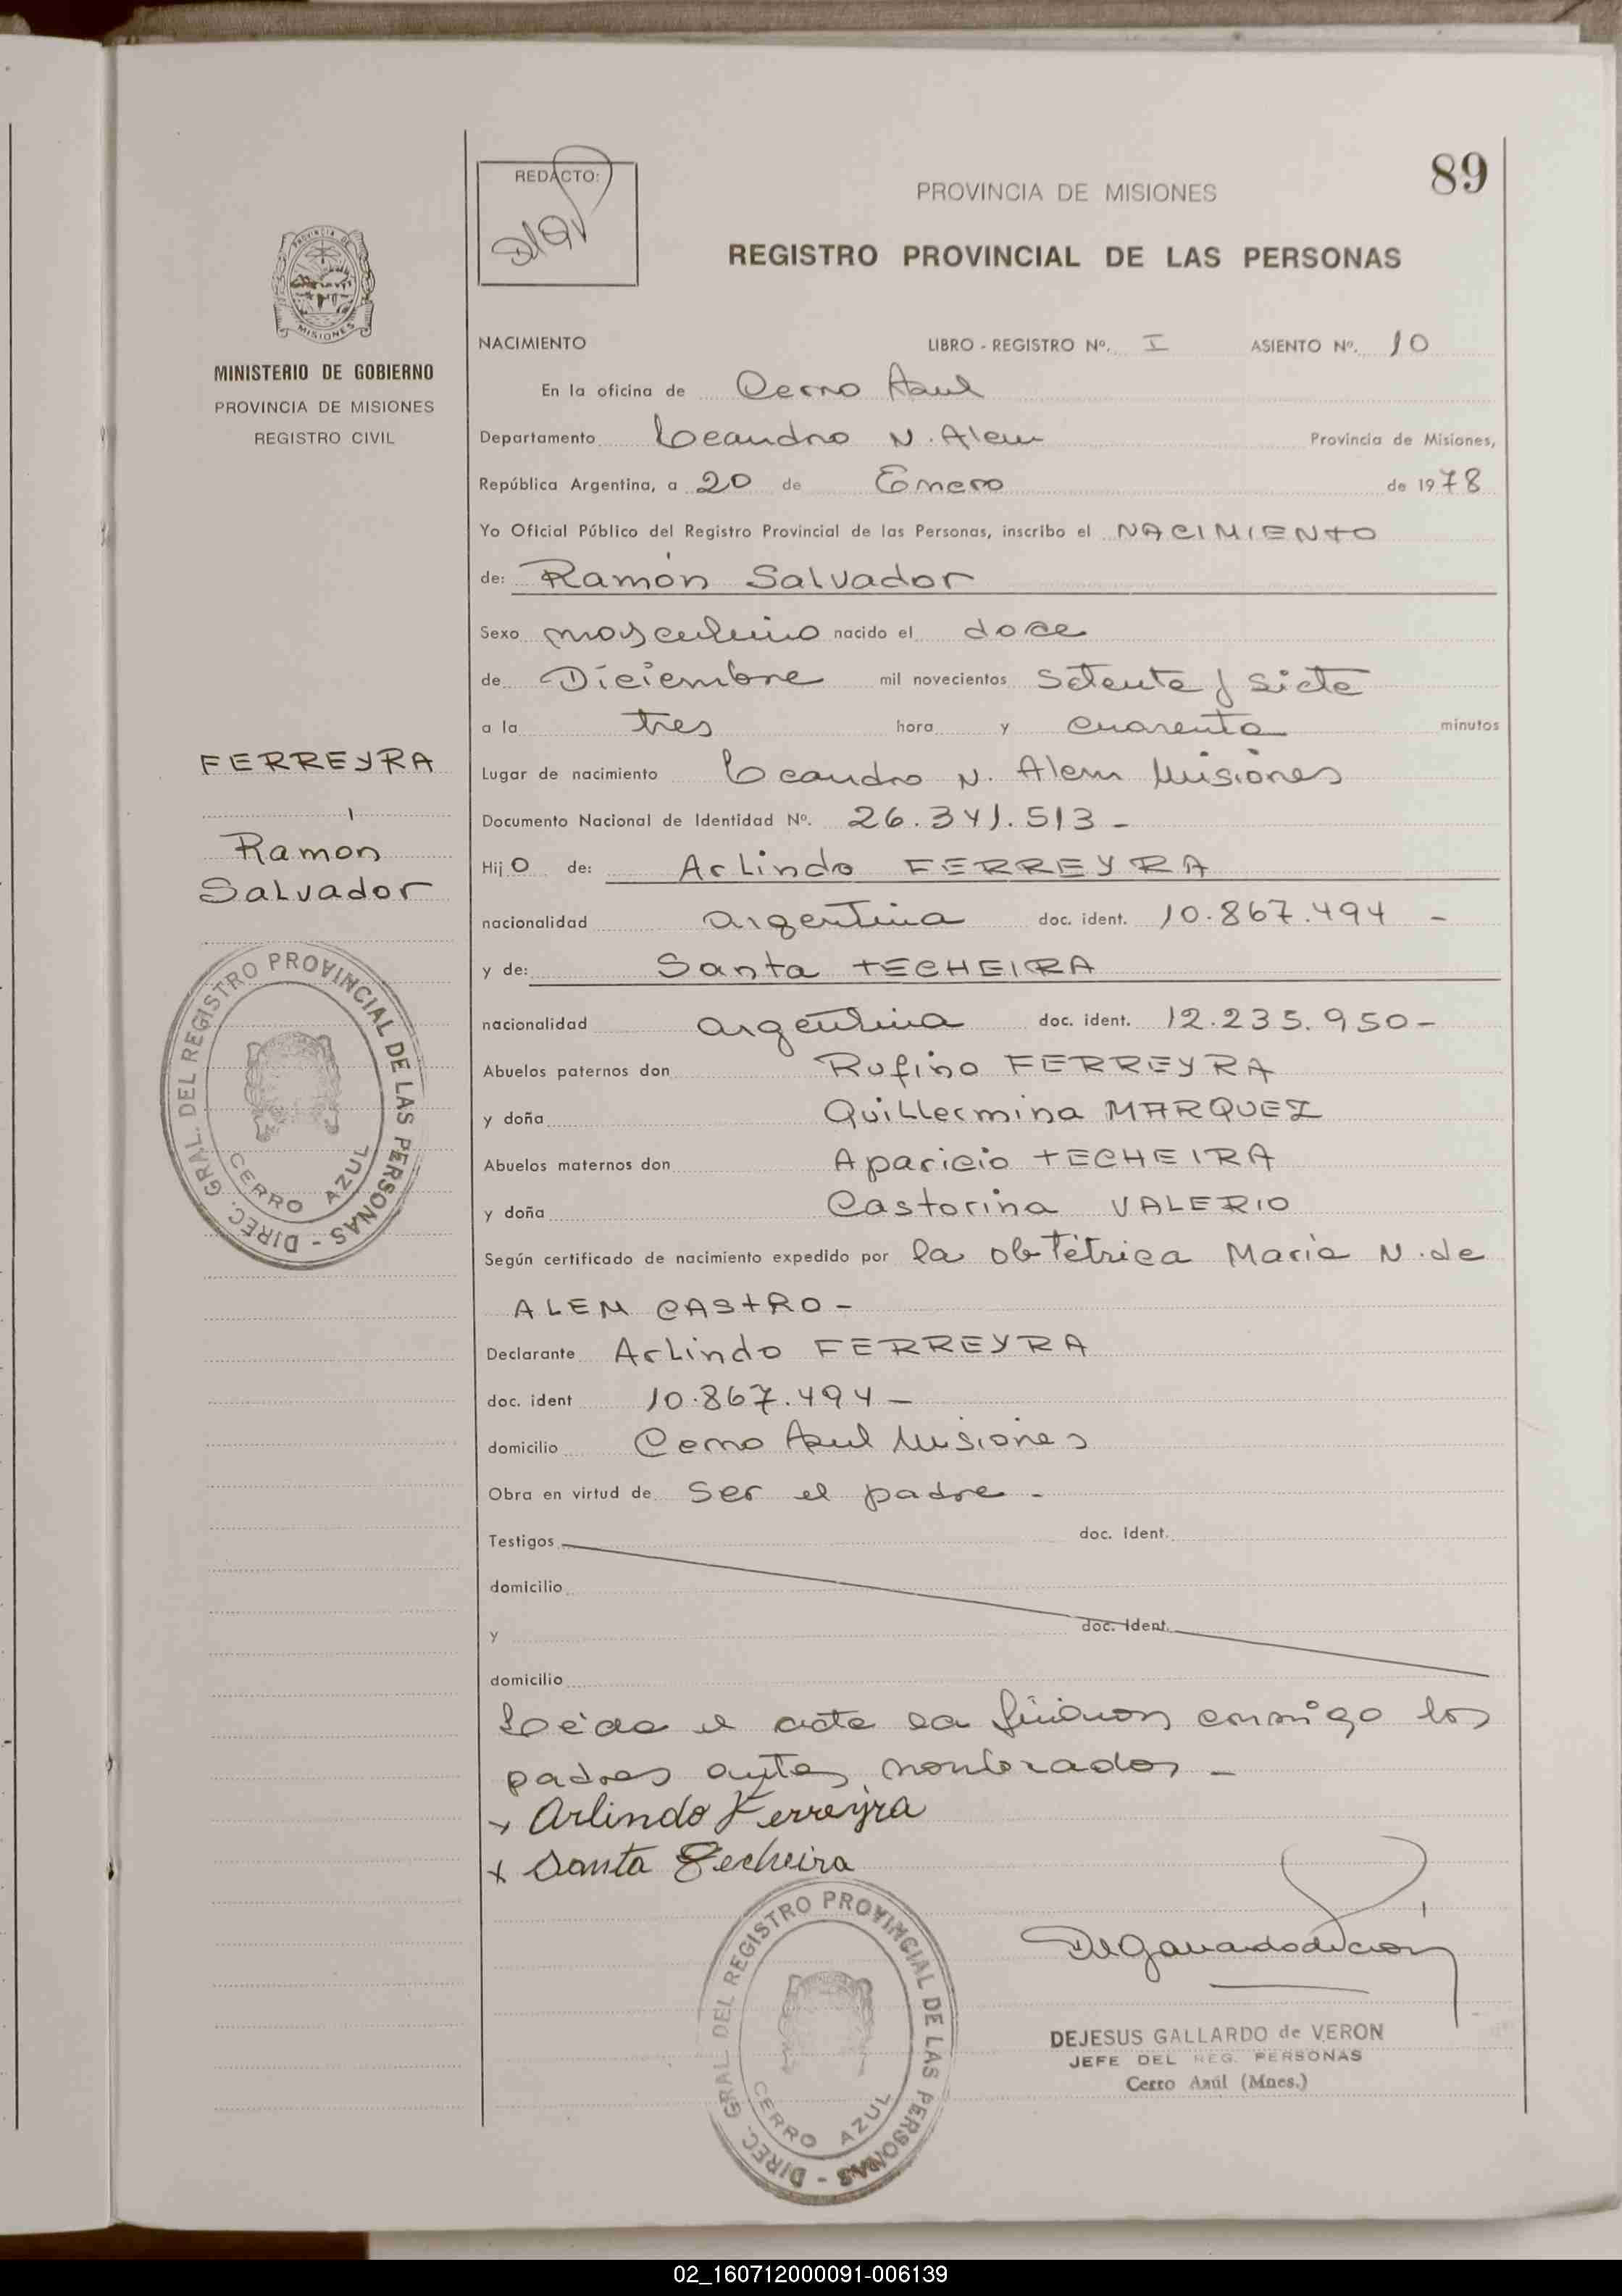 89
REDACTO:
PROVINCIA DE MISIONES
REGISTRO PROVINCIAL DE LAS PERSONAS
PROVINCIA DE
MISIONES
MINISTERIO DE GOBIERNO
PROVINCIA DE MISIONES
REGISTRO CIVIL
NACIMIENTO LIBRO - REGISTRO Nº. I ASIENTO Nº. 10
En la oficina de Cerro Azul
Departamento Leandro N. Alem Provincia de Misiones,
República Argentina, a 20 de Enero de 1978
Yo Oficial Público del Registro Provincial de las Personas, inscribo el NACIMIENTO
de: Ramón Salvador
Sexo masculino nacido el doce
de Diciembre mil novecientos setenta y siete
a la tres hora y cuarenta minutos
Lugar de nacimiento Leandro N. Alem Misiones
Documento Nacional de Identidad Nº. 26.341.513 -
Hijo de: Arlindo FERREYRA
nacionalidad argentina doc. ident. 10.867.494 -
y de: Santa TECHEIRA
nacionalidad argentina doc. ident. 12.235.950-
Abuelos paternos don Rufino FERREYRA
y doña Guillermina MARQUEZ
Abuelos maternos don Aparicio TECHEIRA
y doña Castorina VALERIO
Según certificado de nacimiento expedido por la obtétrica María N. de
ALEM CASTRO -
Declarante Arlindo FERREYRA
doc. ident 10.867.494 -
domicilio Cerro Azul Misiones
Obra en virtud de ser el padre -
Testigos doc. ident.
domicilio
y doc. ident.
domicilio
Leída el acta la firman conmigo los
padres antes nombrados -
x Arlindo Ferreyra
x Santa Techeira
FERREYRA
Ramón
Salvador
DIREC. GRAL. DEL REGISTRO PROVINCIAL DE LAS PERSONAS -
CERRO AZUL
DIREC. GRAL. DEL REGISTRO PROVINCIAL DE LAS PERSONAS -
CERRO AZUL
DEJESUS GALLARDO de VERON
JEFE DEL REG. PERSONAS
Cerro Azul (Mnes.)
02_160712000091-006139